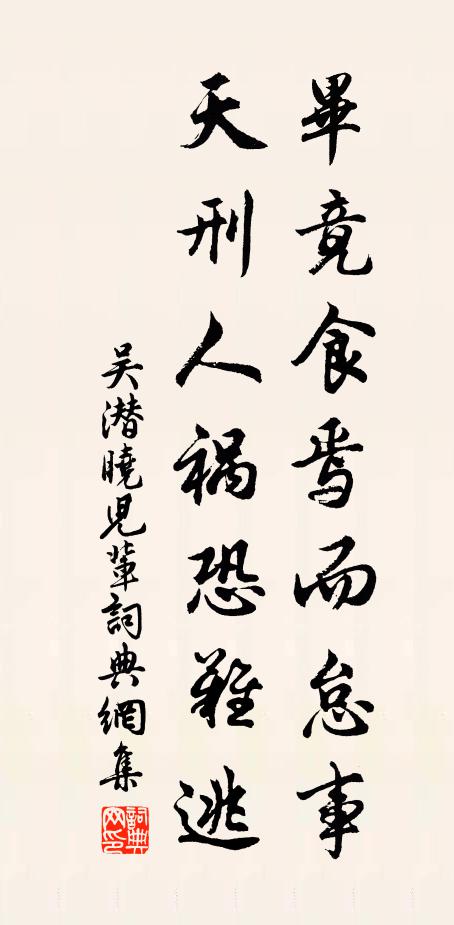 畢竟食焉而怠事
天刑人禍恐難逃
吴潜曉兒輩詞典網集
詞典網印